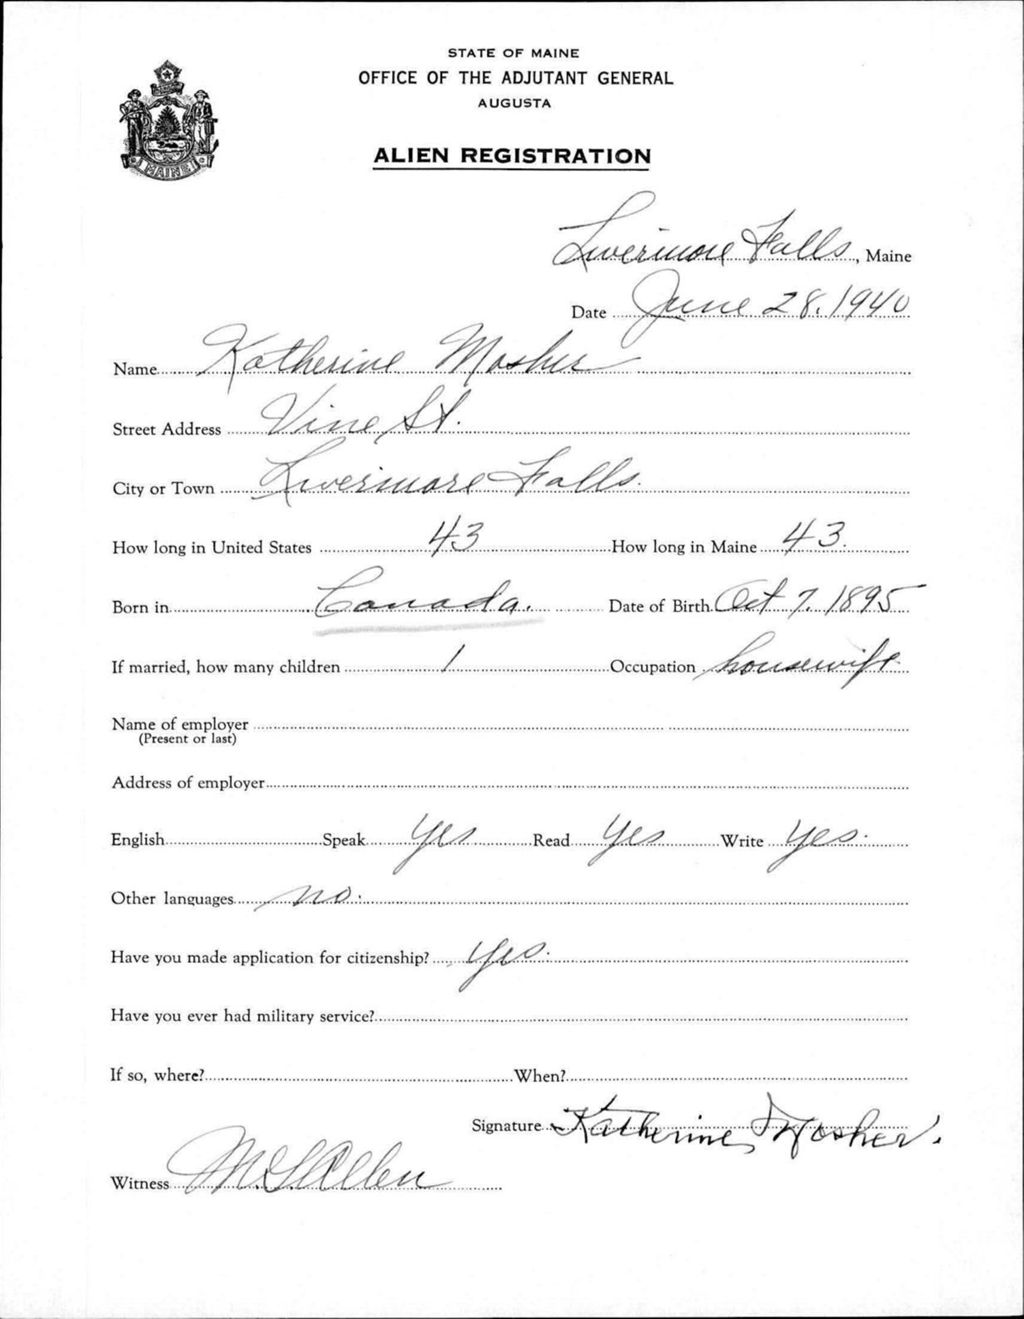 STATE OF MAINE
OFFICE OF THE ADJUTANT GENERAL
AUGUSTA
ALIEN REGISTRATION
MAINE
Livermore Falls, Maine
Date June 28, 1940
Name Katherine Mosher
Street Address Vine St.
City or Town Livermore Falls.
How long in United States 43 How long in Maine 43.
Born in Canada. Date of Birth Oct 7, 1895
If married, how many children 1 Occupation housewife
Name of employer
(Present or last)
Address of employer
English Speak yes Read yes Write yes.
Other languages no.
Have you made application for citizenship? yes.
Have you ever had military service?
If so, where? When?
Signature Katherine Mosher.
Witness Allen